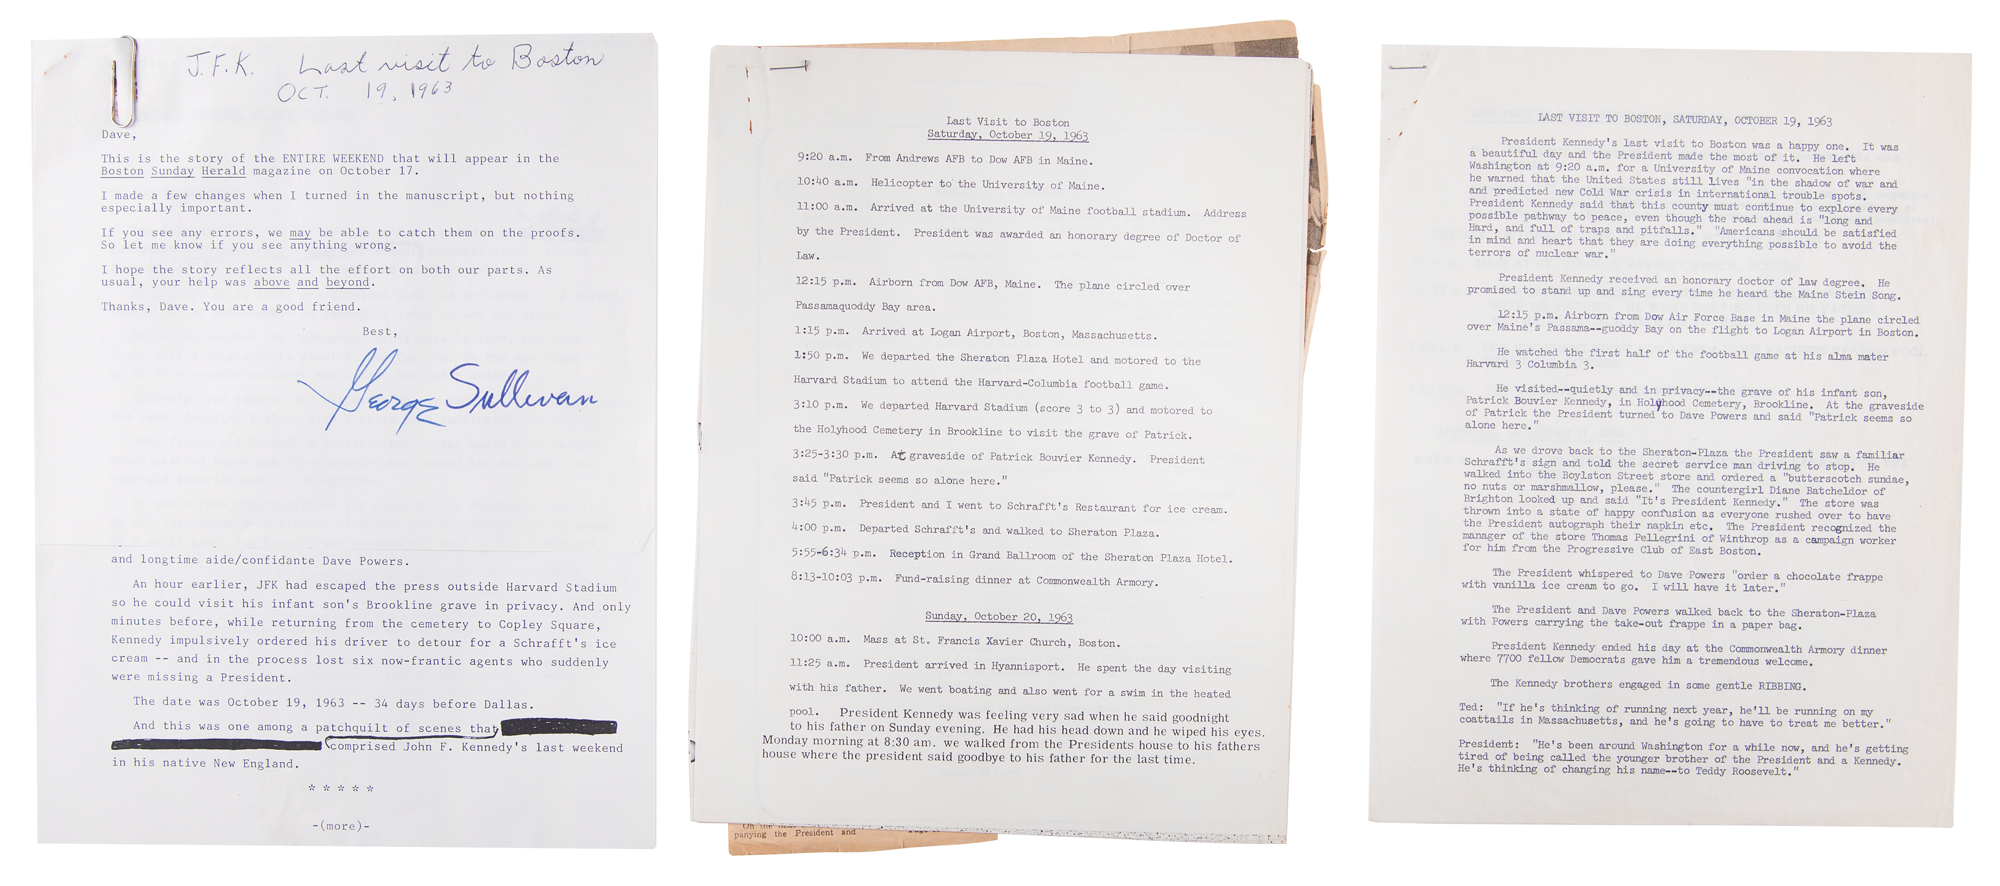 J.F.K. Last visit to Boston
OCT. 19, 1963
Dave,
This is the story of the ENTIRE WEEKEND that will appear in the
Boston Sunday Herald magazine on October 17.
I made a few changes when I turned in the manuscript, but nothing
especially important.
If you see any errors, we may be able to catch them on the proofs.
So let me know if you see anything wrong.
I hope the story reflects all the effort on both our parts. As
usual, your help was above and beyond.
Thanks, Dave. You are a good friend.
Best,
George Sullivan
and longtime aide/confidante Dave Powers.
An hour earlier, JFK had escaped the press outside Harvard Stadium
so he could visit his infant son's Brookline grave in privacy. And only
minutes before, while returning from the cemetery to Copley Square,
Kennedy impulsively ordered his driver to detour for a Schrafft's ice
cream -- and in the process lost six now-frantic agents who suddenly
were missing a President.
The date was October 19, 1963 -- 34 days before Dallas.
And this was one among a patchquilt of scenes that
comprised John F. Kennedy's last weekend
in his native New England.
* * * * *
-(more)-
Last Visit to Boston
Saturday, October 19, 1963
9:20 a.m. From Andrews AFB to Dow AFB in Maine.
10:40 a.m. Helicopter to the University of Maine.
11:00 a.m. Arrived at the University of Maine football stadium. Address
by the President. President was awarded an honorary degree of Doctor of
Law.
12:15 p.m. Airborn from Dow AFB, Maine. The plane circled over
Passamaquoddy Bay area.
1:15 p.m. Arrived at Logan Airport, Boston, Massachusetts.
1:50 p.m. We departed the Sheraton Plaza Hotel and motored to the
Harvard Stadium to attend the Harvard-Columbia football game.
3:10 p.m. We departed Harvard Stadium (score 3 to 3) and motored to
the Holyhood Cemetery in Brookline to visit the grave of Patrick.
3:25-3:30 p.m. At graveside of Patrick Bouvier Kennedy. President
said "Patrick seems so alone here."
3:45 p.m. President and I went to Schrafft's Restaurant for ice cream.
4:00 p.m. Departed Schrafft's and walked to Sheraton Plaza.
5:55-6:34 p.m. Reception in Grand Ballroom of the Sheraton Plaza Hotel.
8:13-10:03 p.m. Fund-raising dinner at Commonwealth Armory.
Sunday, October 20, 1963
10:00 a.m. Mass at St. Francis Xavier Church, Boston.
11:25 a.m. President arrived in Hyannisport. He spent the day visiting
with his father. We went boating and also went for a swim in the heated
pool. President Kennedy was feeling very sad when he said goodnight
to his father on Sunday evening. He had his head down and he wiped his eyes.
Monday morning at 8:30 am. we walked from the Presidents house to his fathers
house where the president said goodbye to his father for the last time.
panying the President and
LAST VISIT TO BOSTON, SATURDAY, OCTOBER 19, 1963
President Kennedy's last visit to Boston was a happy one. It was
a beautiful day and the President made the most of it. He left
Washington at 9:20 a.m. for a University of Maine convocation where
he warned that the United States still lives "in the shadow of war and
and predicted new Cold War crisis in international trouble spots.
President Kennedy said that this county must continue to explore every
possible pathway to peace, even though the road ahead is "long and
Hard, and full of traps and pitfalls." "Americans should be satisfied
in mind and heart that they are doing everything possible to avoid the
terrors of nuclear war."
President Kennedy received an honorary doctor of law degree. He
promised to stand up and sing every time he heard the Maine Stein Song.
12:15 p.m. Airborn from Dow Air Force Base in Maine the plane circled
over Maine's Passama--guoddy Bay on the flight to Logan Airport in Boston.
He watched the first half of the football game at his alma mater
Harvard 3 Columbia 3.
He visited--quietly and in privacy--the grave of his infant son,
Patrick Bouvier Kennedy, in Holyhood Cemetery, Brookline. At the graveside
of Patrick the President turned to Dave Powers and said "Patrick seems so
alone here."
As we drove back to the Sheraton-Plaza the President saw a familiar
Schrafft's sign and told the secret service man driving to stop. He
walked into the Boylston Street store and ordered a "butterscotch sundae,
no nuts or marshmallow, please." The countergirl Diane Batcheldor of
Brighton looked up and said "It's President Kennedy." The store was
thrown into a state of happy confusion as everyone rushed over to have
the President autograph their napkin etc. The President recognized the
manager of the store Thomas Pellegrini of Winthrop as a campaign worker
for him from the Progressive Club of East Boston.
The President whispered to Dave Powers "order a chocolate frappe
with vanilla ice cream to go. I will have it later."
The President and Dave Powers walked back to the Sheraton-Plaza
with Powers carrying the take-out frappe in a paper bag.
President Kennedy ended his day at the Commonwealth Armory dinner
where 7700 fellow Democrats gave him a tremendous welcome.
The Kennedy brothers engaged in some gentle RIBBING.
Ted: "If he's thinking of running next year, he'll be running on my
coattails in Massachusetts, and he's going to have to treat me better."
President: "He's been around Washington for a while now, and he's getting
tired of being called the younger brother of the President and a Kennedy.
He's thinking of changing his name--to Teddy Roosevelt."